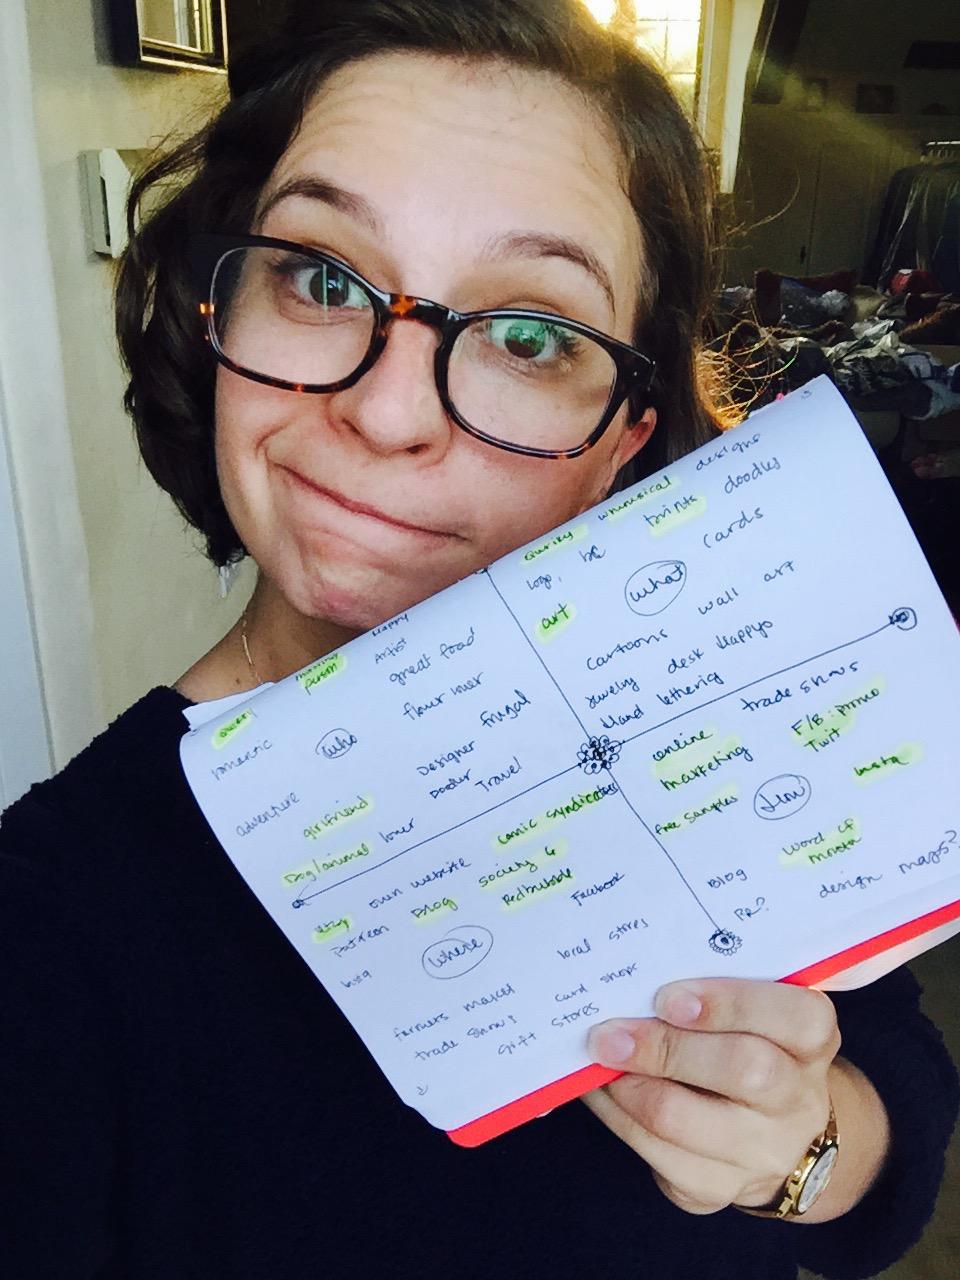 happy
Artist
great food
person
flower lover
romantic
who
frugal
Designer
Travel
adventure
girlfriend
Dog/animal lover
Quirky whimsical designs
logo,
prints doodles
what
cards
art
wall art
cartoons
jewelry desk Happys
Hand lettering
comic syndicates
own website
society 6
etsy
Blog
Redbubble
Facebook
Patreon
where
Insta
local stores
farmers market
card shops
trade shows
gift stores
trade shows
online
marketing
F/B: promo
Twit
Insta
free samples
word of
mouth
Blog
PR?
design mags?